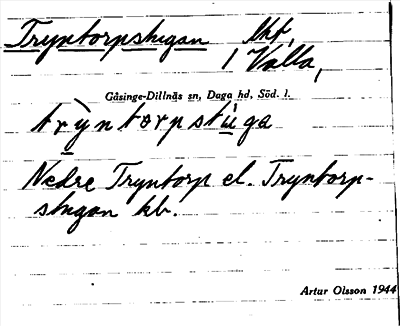 Tryntorpstugan lht,
/ Valla,
Gåsinge-Dillnäs sn, Daga hd, Söd. l.
trỳntorpstu̇ga
Nedre Tryntorp el. Tryntorp-
stugan kb.
Artur Olsson 1944